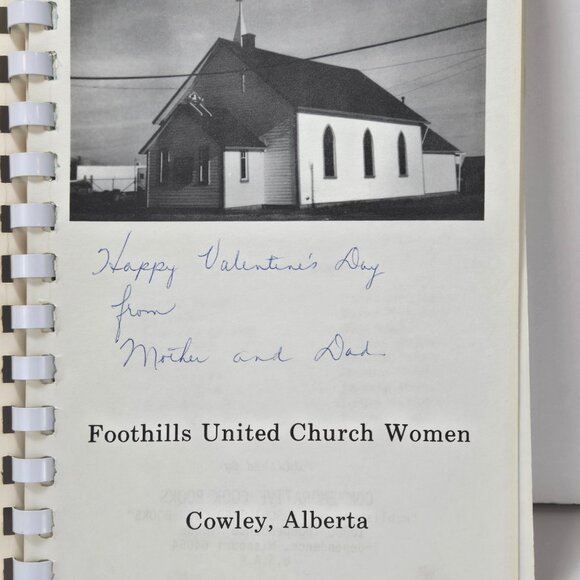 Happy Valentine's Day
from
Mother and Dad
Foothills United Church Women
Cowley, Alberta